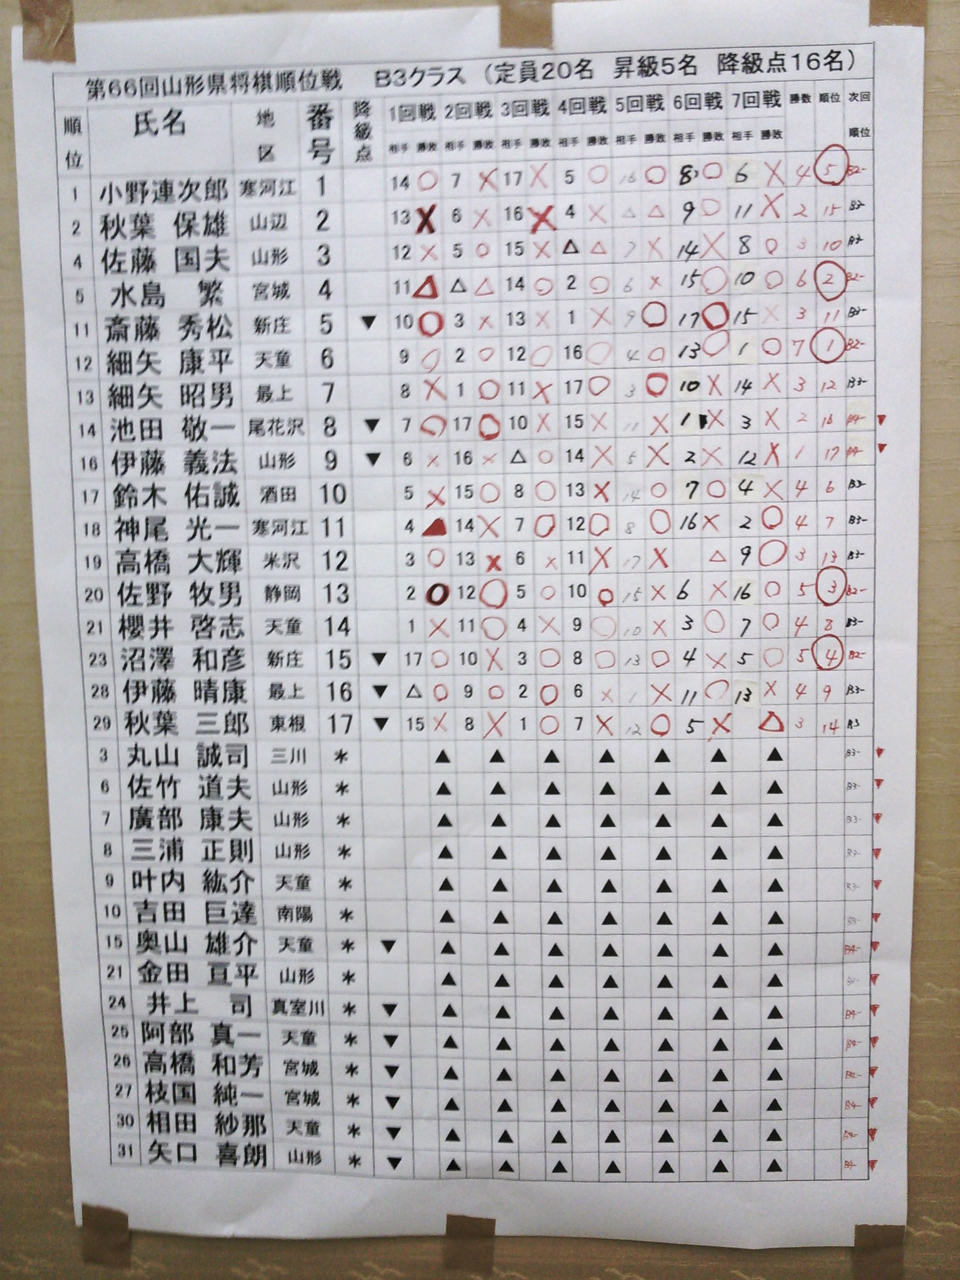 第66回山形県将棋順位戦 B3クラス (定員20名 昇級5名 降級点16名)
順位 氏名 地区 番号 降級点 1回戦 2回戦 3回戦 4回戦 5回戦 6回戦 7回戦 勝数 順位 次回順位
相手 勝敗 相手 勝敗 相手 勝敗 相手 勝敗 相手 勝敗 相手 勝敗 相手 勝敗
1 小野連次郎 寒河江 1 14 ○ 7 × 17 × 5 ○ 16 ○ 8 ○ 6 × 4 5 B2-
2 秋葉 保雄 山辺 2 13 × 6 × 16 × 4 × △ △ 9 ○ 11 × 2 15 B3-
4 佐藤 国夫 山形 3 12 × 5 ○ 15 × △ △ 7 × 14 × 8 ○ 3 10 B3-
5 水島 繁 宮城 4 11 △ △ △ 14 ○ 2 ○ 6 × 15 ○ 10 ○ 6 2 B2-
11 斎藤 秀松 新庄 5 ▼ 10 ○ 3 × 13 × 1 × 9 ○ 17 ○ 15 × 3 11 B3-
12 細矢 康平 天童 6 9 ○ 2 ○ 12 ○ 16 ○ 4 ○ 13 ○ 1 ○ 7 1 B2-
13 細矢 昭男 最上 7 8 × 1 ○ 11 × 17 ○ 3 ○ 10 × 14 × 3 12 B3-
14 池田 敬一 尾花沢 8 ▼ 7 ○ 17 ○ 10 × 15 × 11 × 1 × 3 × 2 16 ▼
16 伊藤 義法 山形 9 ▼ 6 × 16 × △ ○ 14 × 5 × 2 × 12 × 1 17 ▼
17 鈴木 佑誠 酒田 10 5 × 15 ○ 8 ○ 13 × 14 ○ 7 ○ 4 × 4 6 B3-
18 神尾 光一 寒河江 11 4 ▲ 14 × 7 ○ 12 ○ 8 ○ 16 × 2 ○ 4 7 B3-
19 高橋 大輝 米沢 12 3 ○ 13 × 6 × 11 × 17 × △ 9 ○ 3 13 B3-
20 佐野 牧男 静岡 13 2 ○ 12 ○ 5 ○ 10 ○ 15 × 6 × 16 ○ 5 3 B2-
21 櫻井 啓志 天童 14 1 × 11 ○ 4 × 9 ○ 10 × 3 ○ 7 ○ 4 8 B3-
23 沼澤 和彦 新庄 15 ▼ 17 ○ 10 × 3 ○ 8 ○ 13 ○ 4 × 5 ○ 5 4 B2-
28 伊藤 晴康 最上 16 ▼ △ ○ 9 ○ 2 ○ 6 × 1 × 11 ○ 13 × 4 9 B3-
29 秋葉 三郎 東根 17 ▼ 15 × 8 × 1 ○ 7 × 12 ○ 5 × △ 3 14 B3
3 丸山 誠司 三川 * ▲ ▲ ▲ ▲ ▲ ▲ ▲ B3- ▼
6 佐竹 道夫 山形 * ▲ ▲ ▲ ▲ ▲ ▲ ▲ B3- ▼
7 廣部 康夫 山形 * ▲ ▲ ▲ ▲ ▲ ▲ ▲ B3- ▼
8 三浦 正則 山形 * ▲ ▲ ▲ ▲ ▲ ▲ ▲ ▼
9 叶内 紘介 天童 * ▲ ▲ ▲ ▲ ▲ ▲ ▲ ▼
10 吉田 巨達 南陽 * ▲ ▲ ▲ ▲ ▲ ▲ ▲ ▼
15 奥山 雄介 天童 * ▼ ▲ ▲ ▲ ▲ ▲ ▲ ▲ B4- ▼
21 金田 亘平 山形 * ▲ ▲ ▲ ▲ ▲ ▲ ▲ ▼
24 井上 司 真室川 * ▼ ▲ ▲ ▲ ▲ ▲ ▲ ▲ B4- ▼
25 阿部 真一 天童 * ▼ ▲ ▲ ▲ ▲ ▲ ▲ ▲ B4- ▼
26 高橋 和芳 宮城 * ▼ ▲ ▲ ▲ ▲ ▲ ▲ ▲ B4- ▼
27 枝国 純一 宮城 * ▼ ▲ ▲ ▲ ▲ ▲ ▲ ▲ B4- ▼
30 相田 紗那 天童 * ▼ ▲ ▲ ▲ ▲ ▲ ▲ ▲ B4- ▼
31 矢口 喜朗 山形 * ▼ ▲ ▲ ▲ ▲ ▲ ▲ ▲ B4- ▼